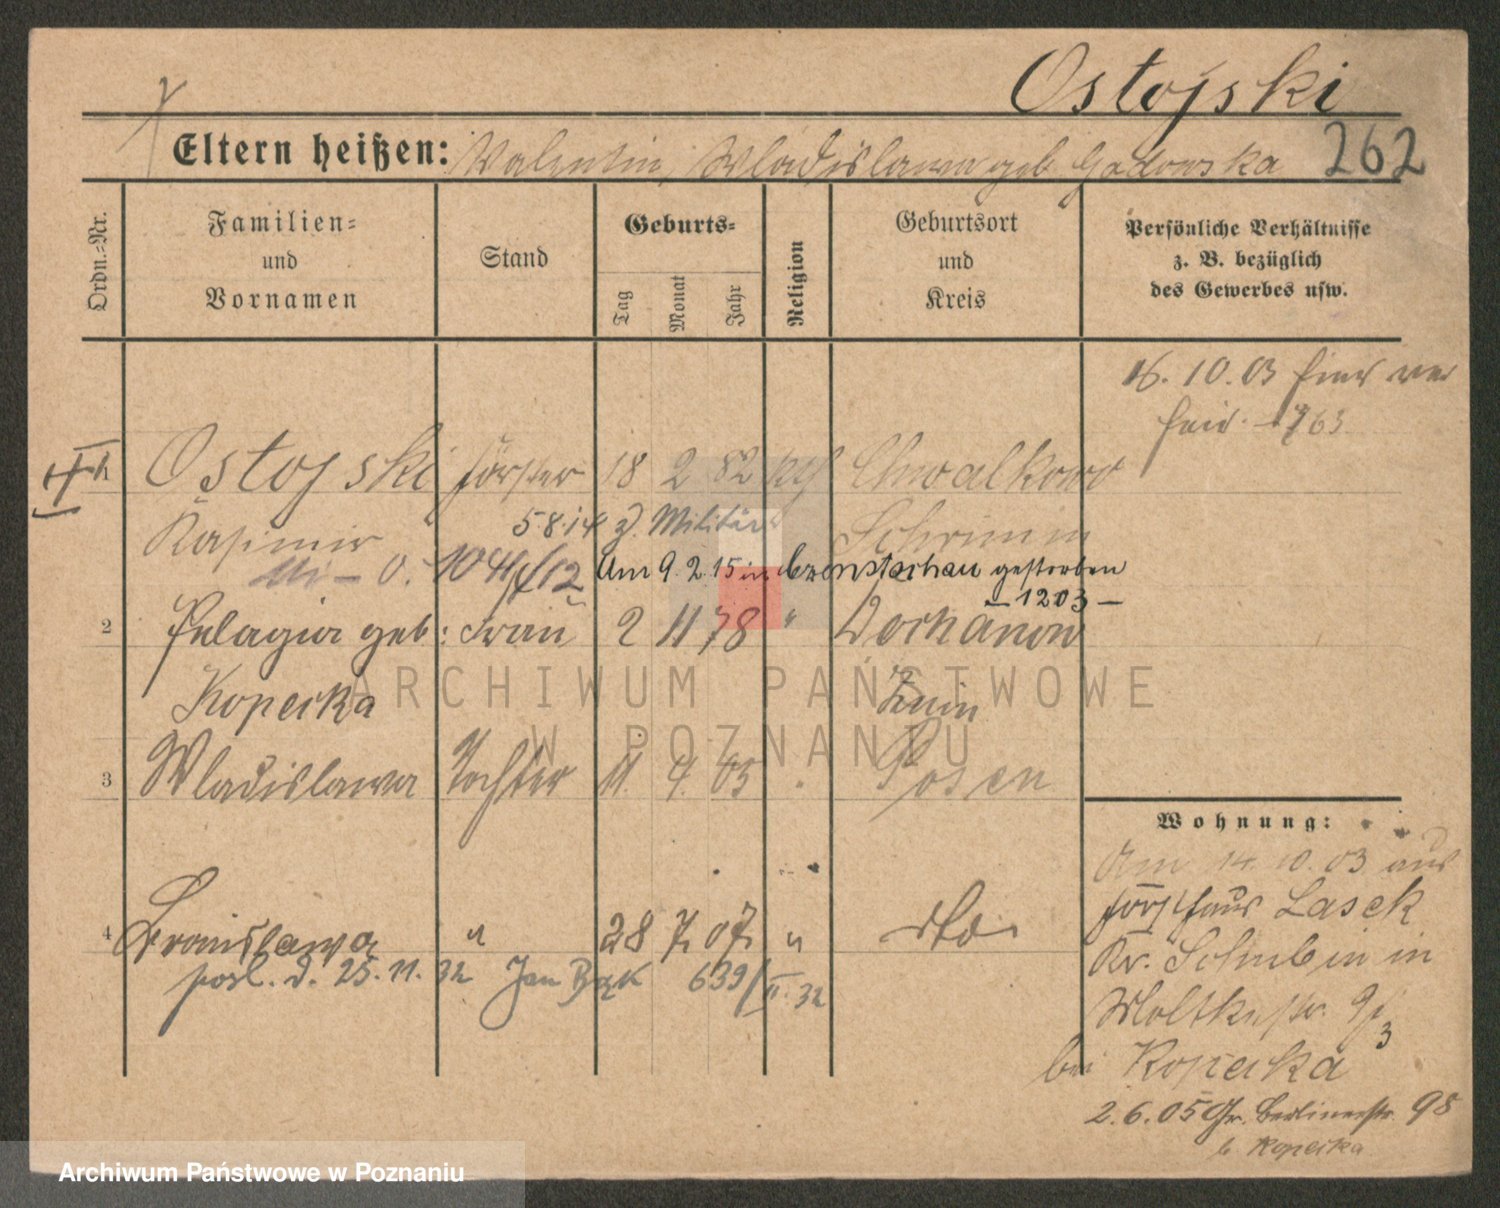 Ostojski
Eltern heißen: Valentin, Wladislawa geb. Gadowska 262
Ordn.-Nr.
Familien-
und
Vornamen
Stand
Geburts-
Tag
Monat
Jahr
Religion
Geburtsort
und
Kreis
Persönliche Verhältnisse
z. B. bezüglich
des Gewerbes usw.
16. 10. 03
763
Ostojski Förster 18 2 82 kth Chwalkowo
Kasimir 5 8.14 z. Militär Schrimm
10411/12 Am 9. 2. 15 in Czenstochau gestorben
- 1203 -
2 Pelagia geb: Frau 2 11 78 " Dochanowo
Kopecka Znin
3 Wladislawa Tochter 11. 4. 05 Posen
4 Bronislawa " 28 7. 07. " dto.
posl. d. 25. 11. 32 Jan Bąk 639/II. 32
Wohnung:
Am 14. 10. 03 aus
Forsthaus Lasek
Kr. Schubin in
Moltkestr. 9/3
bei Kopecka
2. 6. 05 Gr. Berlinerstr. 98
b. Kopecka
ARCHIWUM PAŃSTWOWE
W POZNANIU
Archiwum Państwowe w Poznaniu